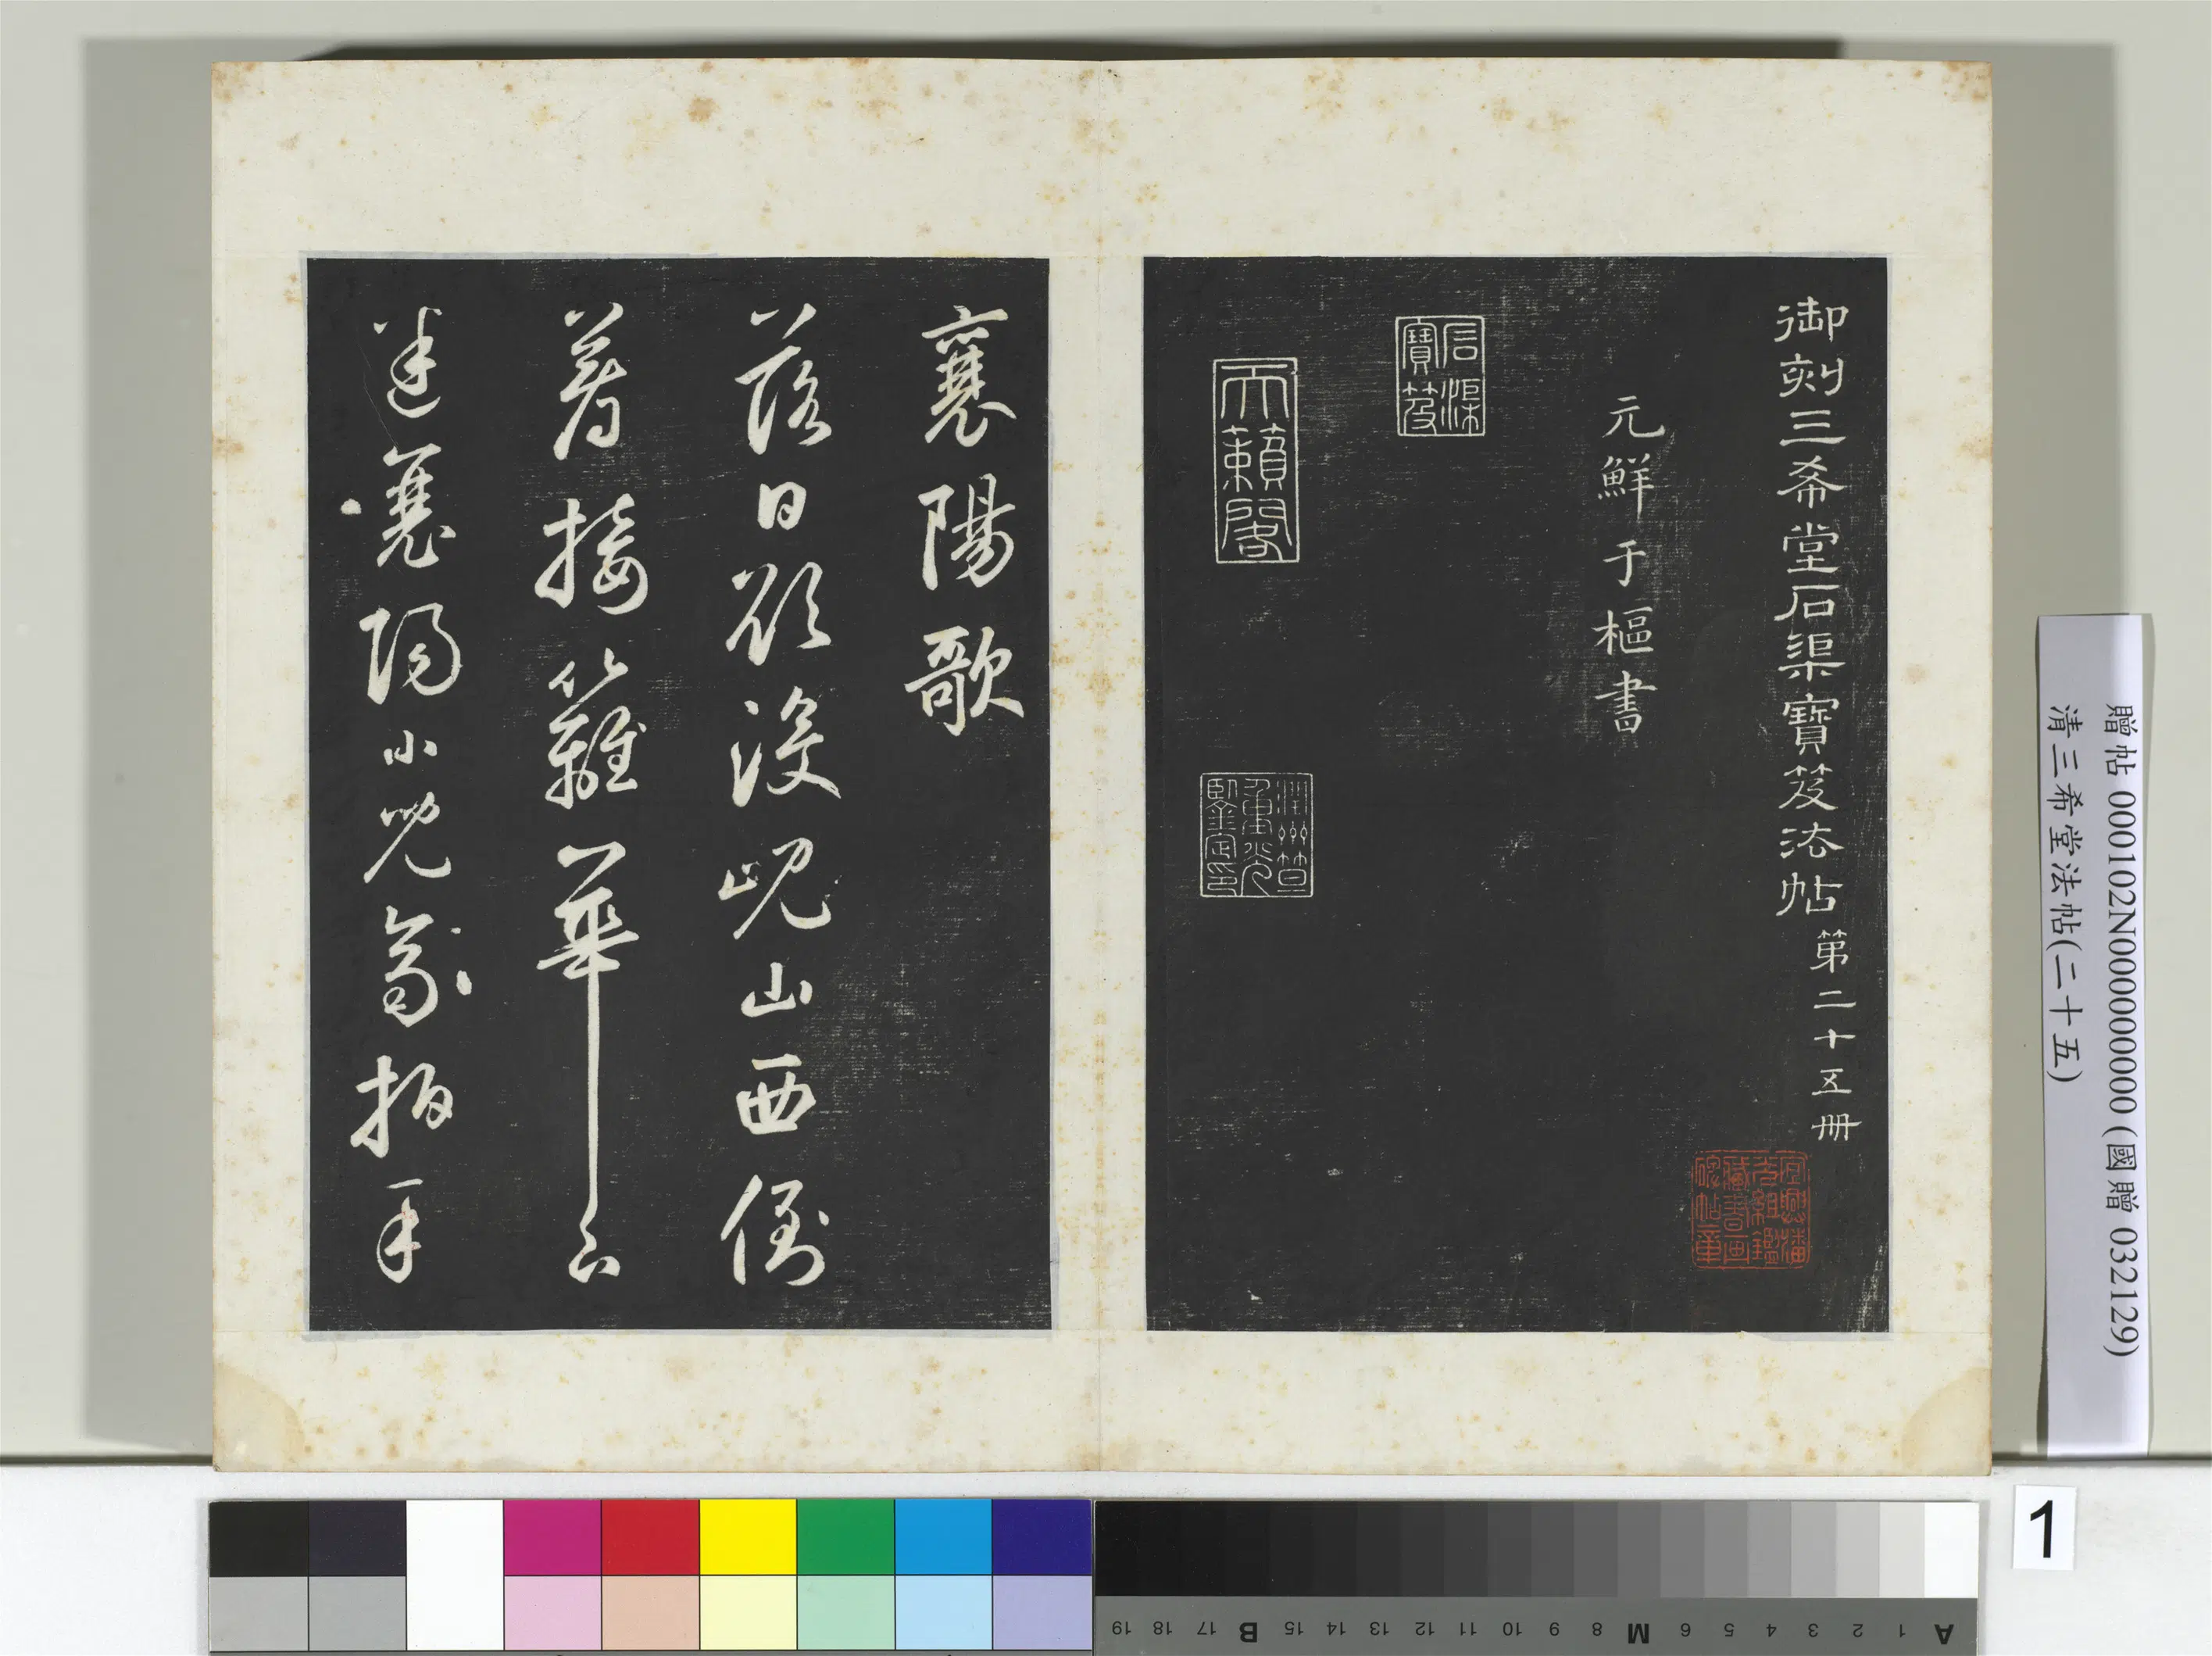 御刻三希堂石渠寶笈法帖 第二十五冊
元鮮于樞書
石渠寶笈
天籟閣
潤州笪重光鑒定印
宜興潘元組鑑藏書画碑帖章
襄陽歌
落日欲沒峴山西倒
著接䍦華下
迷襄陽小兒齊拍手
贈帖 000102N000000000 (國贈 032129)
清三希堂法帖(二十五)
1
A 1 2 3 4 5 6 M 8 9 10 11 12 13 14 15 B 17 18 19